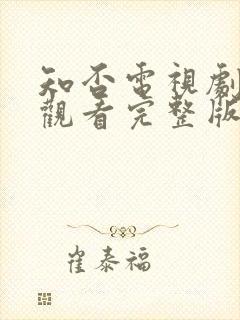 知否電視劇
觀看完整版
崔泰福